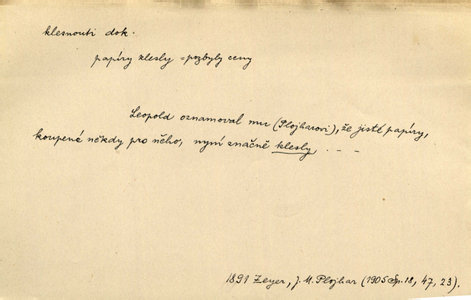 klesnouti dok.
papíry klesly = pozbyly ceny
Leopold oznamoval mu (Plojharovi), že jisté papíry,
koupené někdy pro něho, nyní značně klesly . – –
1891 Zeyer, J. M. Plojhar (1905 Sp. 18, 47, 23).